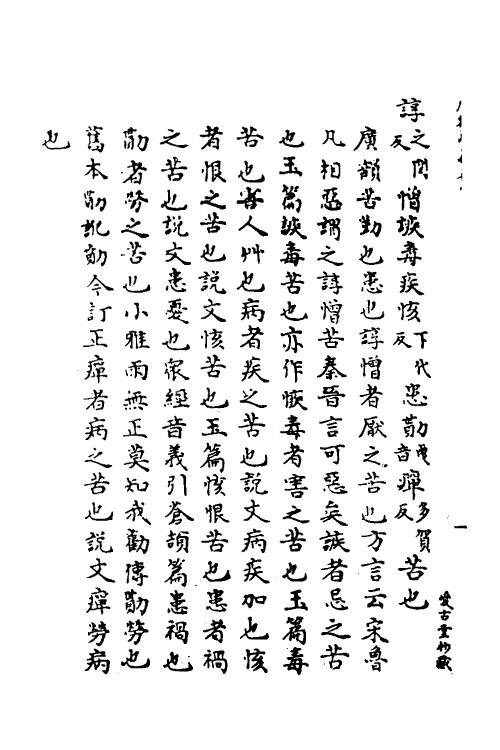 諄之閏反憎誺毒疾恔下代反患勩曳音癉多賀反苦也
廣頟苦勤也患也諄憎者厭之苦也方言云宋魯
凡相惡謂之諄憎苦秦晉言可惡矣誺者忌之苦
也玉篇誺毒苦也亦作悷毒者害之苦也玉篇毒
苦也害人艸也病者疾之苦也說文病疾加也恔
者恨之苦也說文恔苦也玉篇恔恨苦也患者禍
之苦也說文患憂也衆經音義引蒼頡篇患禍也
勩者勞之苦也小雅雨無正莫知我勩傳勩勞也
舊本勩訛勚今訂正癉者病之苦也說文癉勞病
也
一
愛古堂抄藏